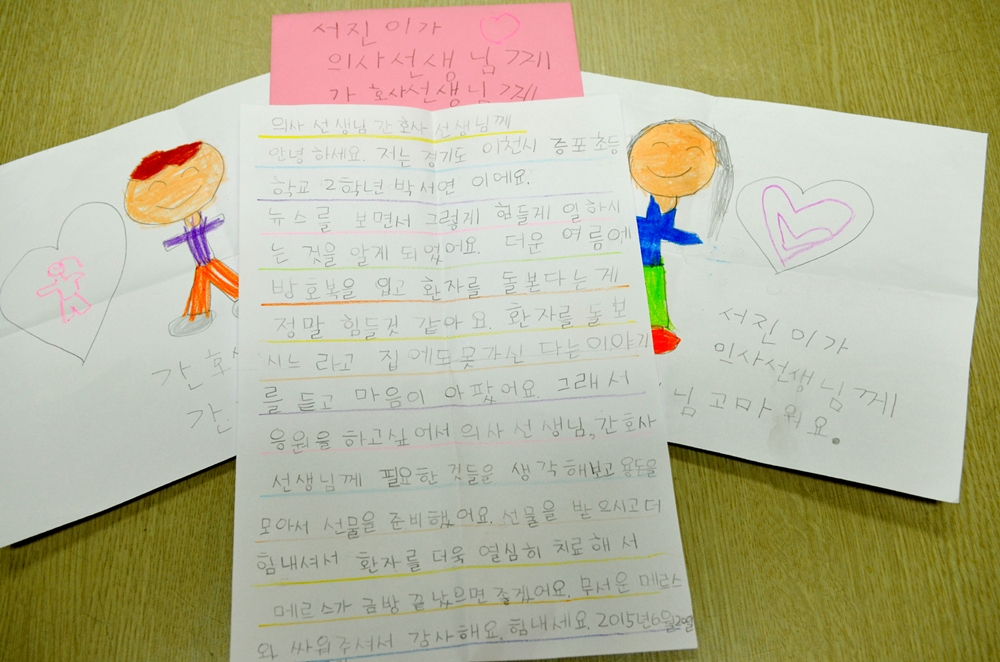 서진 이가
의사선생님께
간호사선생님께
의사 선생님 간호사 선생님께
안녕 하세요. 저는 경기도 이천시 증포초등
학교 2학년 박서연 이에요.
뉴스를 보면서 그렇게 힘들게 일하시
는 것을 알게 되었어요. 더운 여름에
방호복을 입고 환자를 돌본다는 게
정말 힘들것 같아요. 환자를 돌보
시느라고 집에도못가신 다는이야기
를 듣고 마음이 아팠어요. 그래서
응원을 하고싶어서 의사 선생님, 간호사
선생님께 필요한 것들을 생각해보고 용돈을
모아서 선물을 준비했어요. 선물을 받으시고 더
힘내셔서 환자를 더욱 열심히 치료해 서
메르스가 금방 끝났으면 좋겠어요. 무서운 메르스
와 싸워주셔서 감사해요. 힘내세요. 2015년 6월
간호
간
서진 이가
의사선생님께
님 고마워요.